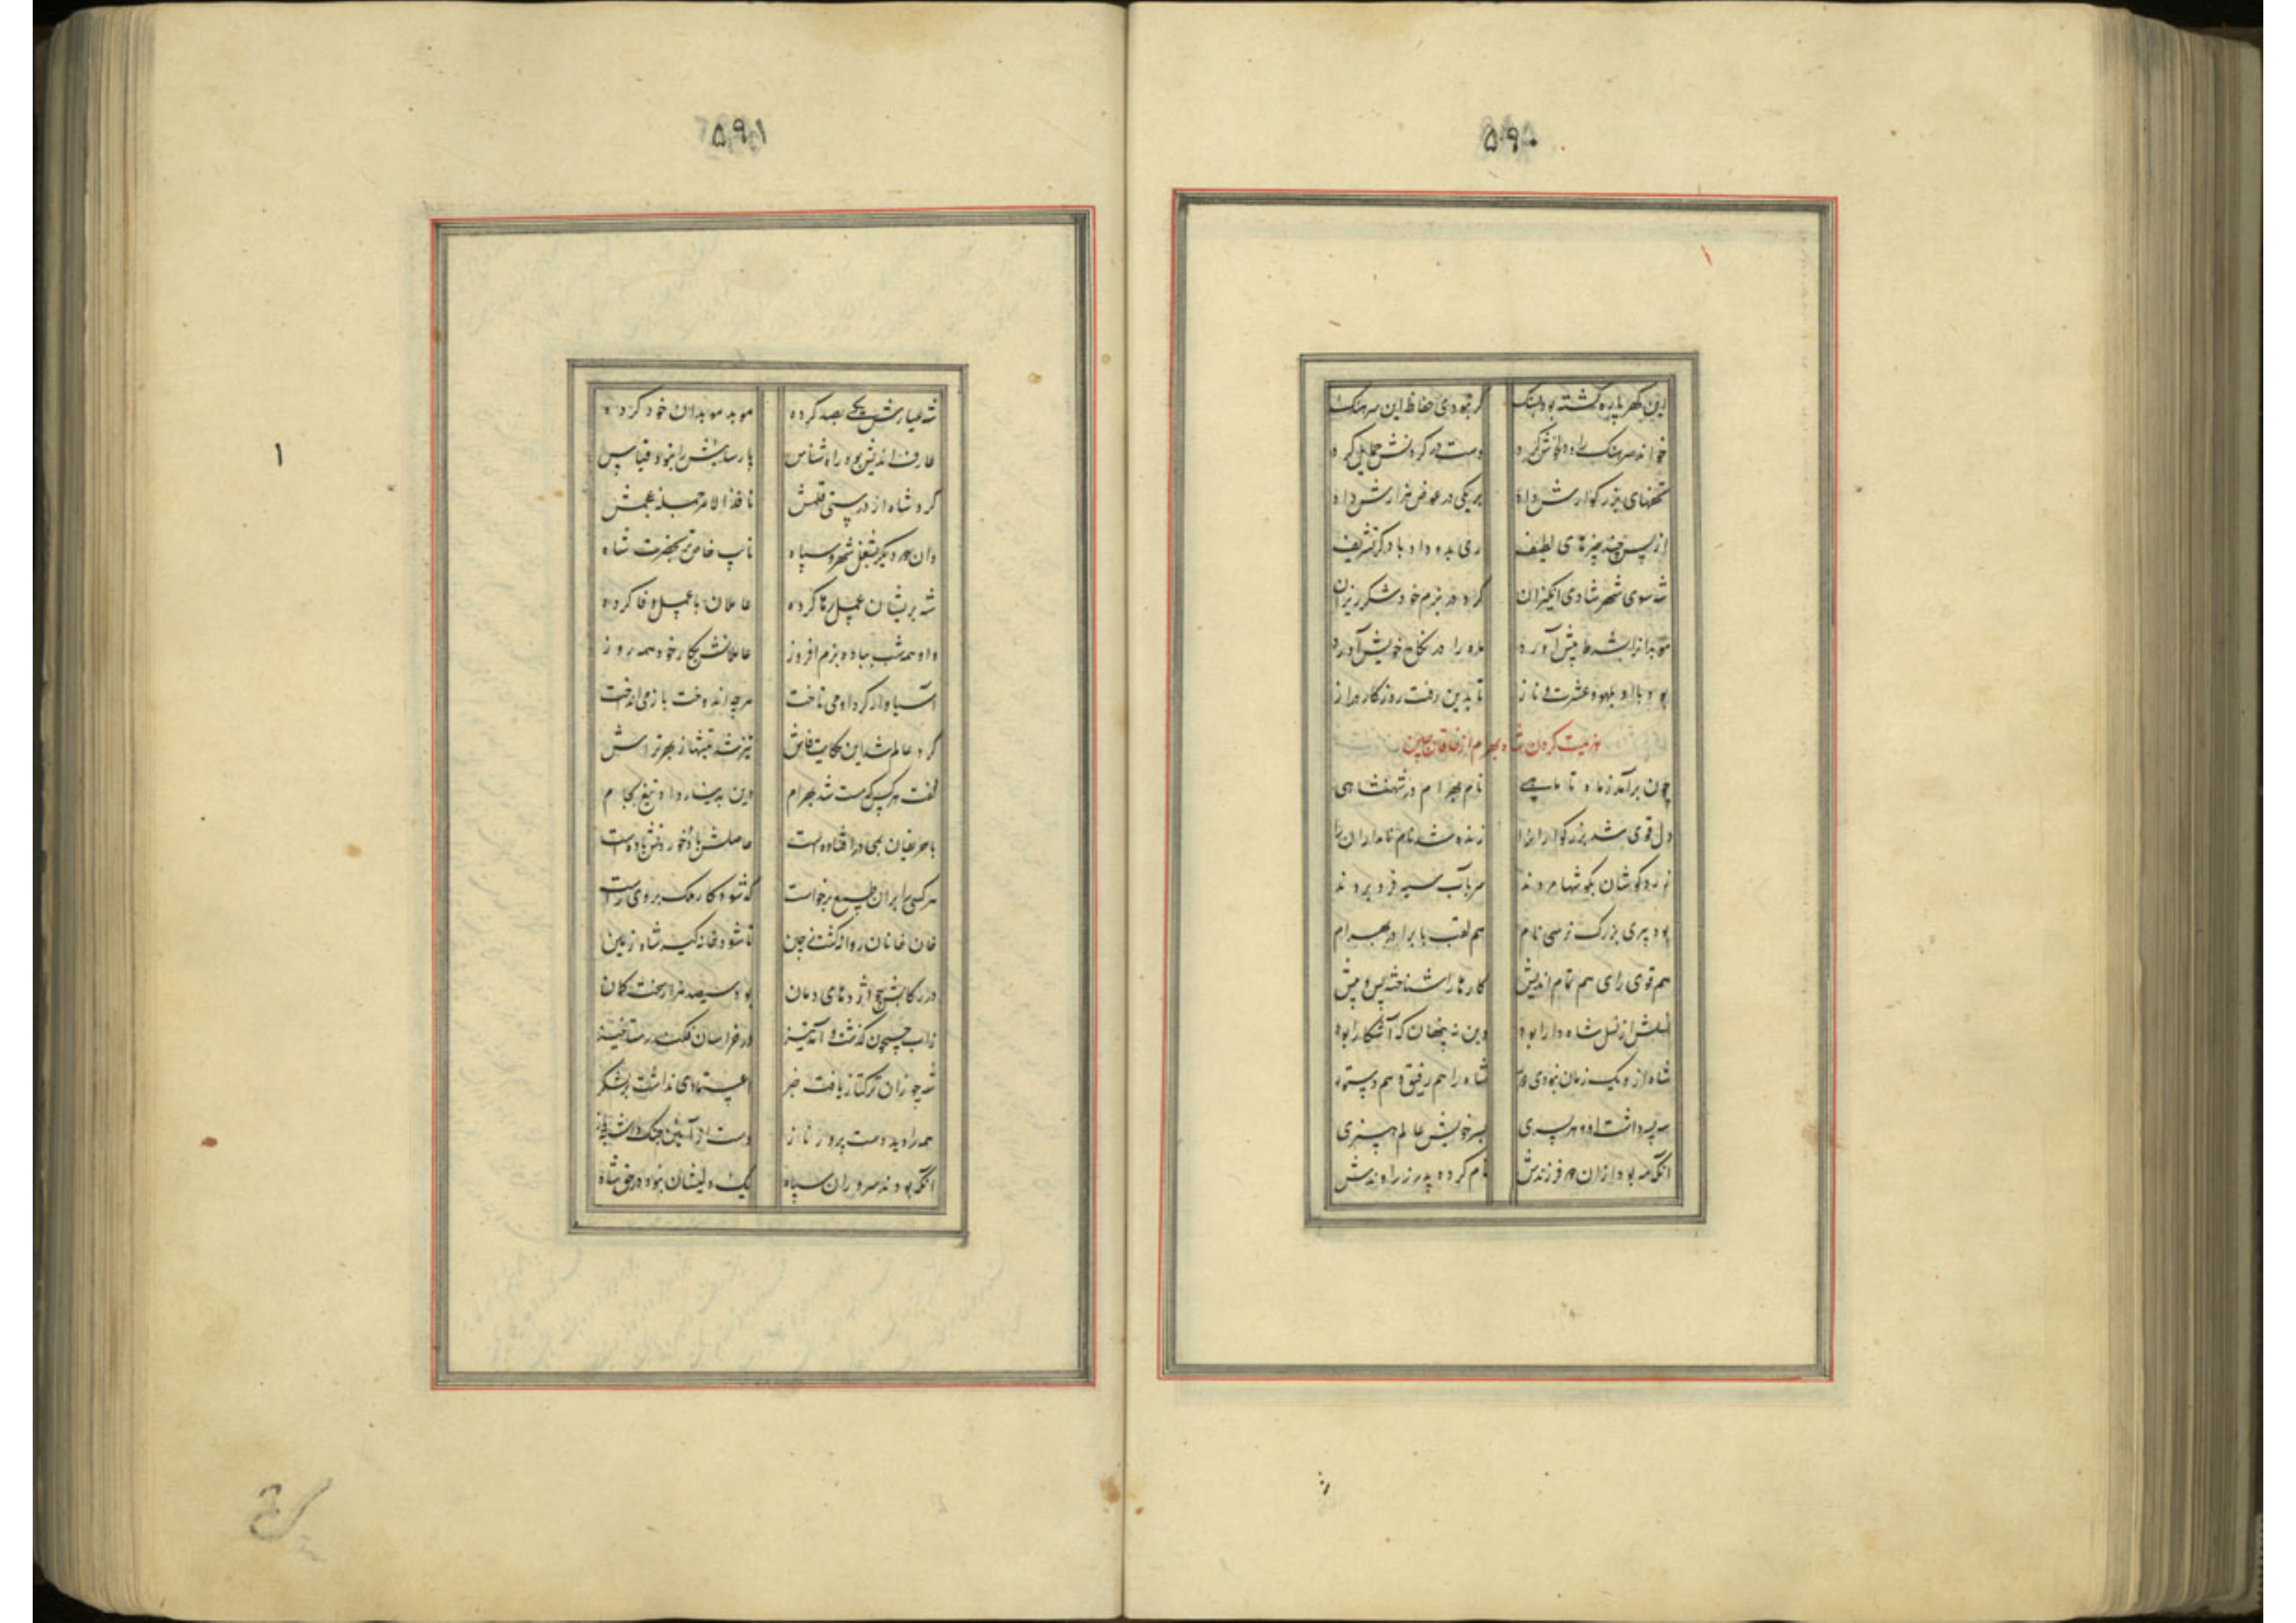 ۵۹۰
این گهر پاره گشته بود بسنگ گر نبودی حفاظ این سرهنگ
خواند سرهنگ را و دلخوش کرد دست در گردنش حمایل کرد
تحفهای بزرگوارش داد بر یکی در عوض هزارش داد
از پس چند چیزهای لطیف ری بدو داد با دگر تشریف
شد سوی شهر شادی انگیزان کرد در بزم خود شکرریزان
موبدانرا بشرط پیش آورد ماه را در نکاح خویش آورد
بود با او بلهو و عشرت و ناز تا بدین رفت روزگار دراز
هزیمت کردن شاه بهرام از خاقان چین
چون برآمد ز ماه تا ماهی نام بهرام در شهنشاهی
دل قوی شد بزرگواران را زنده شد نام نامداران را
سر بآب سیه فرو بردند
بود پیری بزرگ نرسی نام هم لقب با برادر بهرام
هم قوی رای هم تمام اندیش کارها را شناخته پس و پیش
اصلش از نسل شاه دارا بود وین نه پنهان که آشکارا بود
شاه ازو یک زمان نبودی دور شاه را هم رفیق و هم دستور
سه پسر داشت او و هر پسری بسر خویش عالم هنری
آنکه مه بود ازان سه فرزندش نام کرده پدر زراوندش
۵۹۱
شه عیارش یکی بصد کرده موبد موبدان خود کرده
عارف اندیش بود و راه شناس پارسائیش را نبود قیاس
کرد شاه از درستی قلمش نافذ الامر جمله عجمش
وان سه دیگر بشغل شهر و سپاه نایب خاص تر بحضرت شاه
شه بریشان عمل رها کرده عاملان با عمل وفا کرده
داد همه شب بباده بزم افروز عاملانش بکار خود همه روز
آسیاوار گرد او می تاخت هرچه اندوخت باز می انداخت
گرد عالم شد این حکایت فاش تیز شد تیشهاز بهر تراش
گفت هر کس که مست شد بهرام دین بدینار داد و تیغ بجام
با حریفان بمی در افتاده است حاصلش باد و خوردنش باده است
هر کسی را بران طمع برخواست که شود کار ملک بر وی راست
خان خانان روانه گشت ز چین تا شود خانه گیر شاه زمین
در رکابش چو اژدهای دمان بود سیصد هزار سخت کمان
زاب جیحون گذشت و آمد تیز در خراسان فکند رستاخیز
شه چو زان ترکتاز یافت خبر اعتمادی نداشت بر لشکر
همه را دید دست پرور ناز دست از آئین جنگ داشته باز
آنکه بودند سروران سپاه یک دلیشان نبود در حق شاه
۱